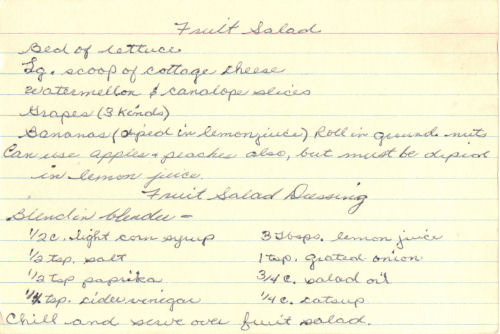 Fruit Salad
Bed of lettuce
Lg. scoop of cottage cheese
Watermellon & canalope slices
Grapes (3 Kinds)
Bananas (diped in lemon juice) Roll in ground nuts
Can use apples & peaches also, but must be diped
in lemon juice.
Fruit Salad Dressing
Blend in blender -
1/2 c. light corn syrup 3 Tbsps. lemon juice
1/2 tsp. salt 1 tsp. grated onion
1/2 tsp paprika 3/4 c. salad oil
1/4 tsp. cider vinegar 1/4 c. catsup
Chill and serve over fruit salad.